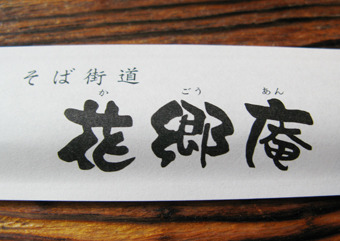 そば街道
か ごう あん
花郷庵